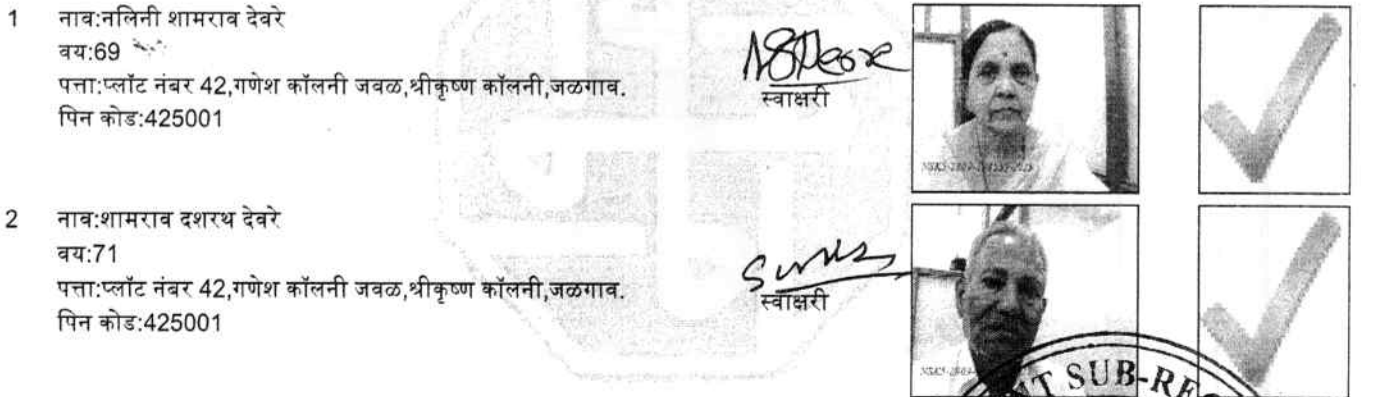 1 नाव:नलिनी शामराव देवरे
वय:69
पत्ता:प्लॉट नंबर 42,गणेश कॉलनी जवळ,श्रीकृष्ण कॉलनी,जळगाव.
पिन कोड:425001
NSDeore
स्वाक्षरी
2 नाव:शामराव दशरथ देवरे
वय:71
पत्ता:प्लॉट नंबर 42,गणेश कॉलनी जवळ,श्रीकृष्ण कॉलनी,जळगाव.
पिन कोड:425001
स्वाक्षरी
SUB-REG